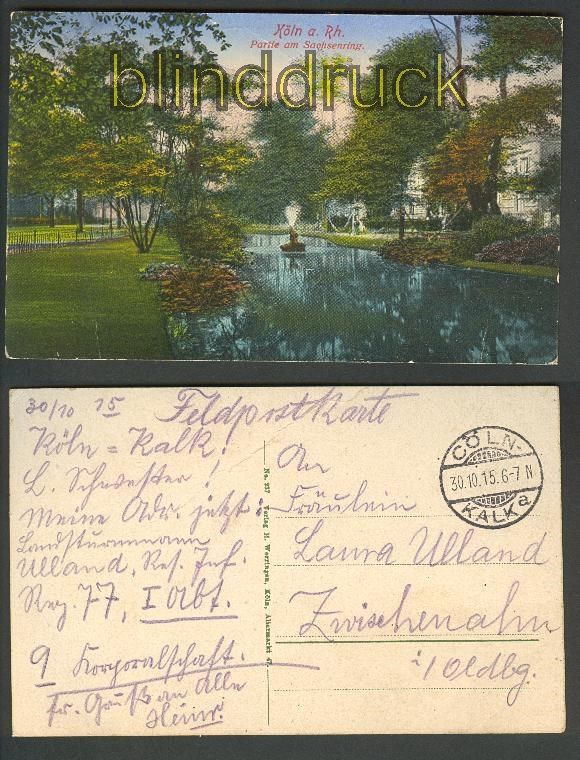 Köln a. Rh.
Partie am Sachsenring.
blinddruck
30/10 15 Feldpostkarte
Köln = Kalk!
L. Schwester!
Meine Adr. jetzt:
Landsturmmann
Ulland, Res. Inf.
Reg. 77, I Abt.
9 Korporalschaft.
Fr. Gruß an Alle
Heinr.
No. 217 Verlag H. Worringen, Köln, Altermarkt 47.
CÖLN-
30.10.15.6-7 N
KALK a
An
Fräulein
Laura Ulland
Zwischenahn
i/Oldbg.